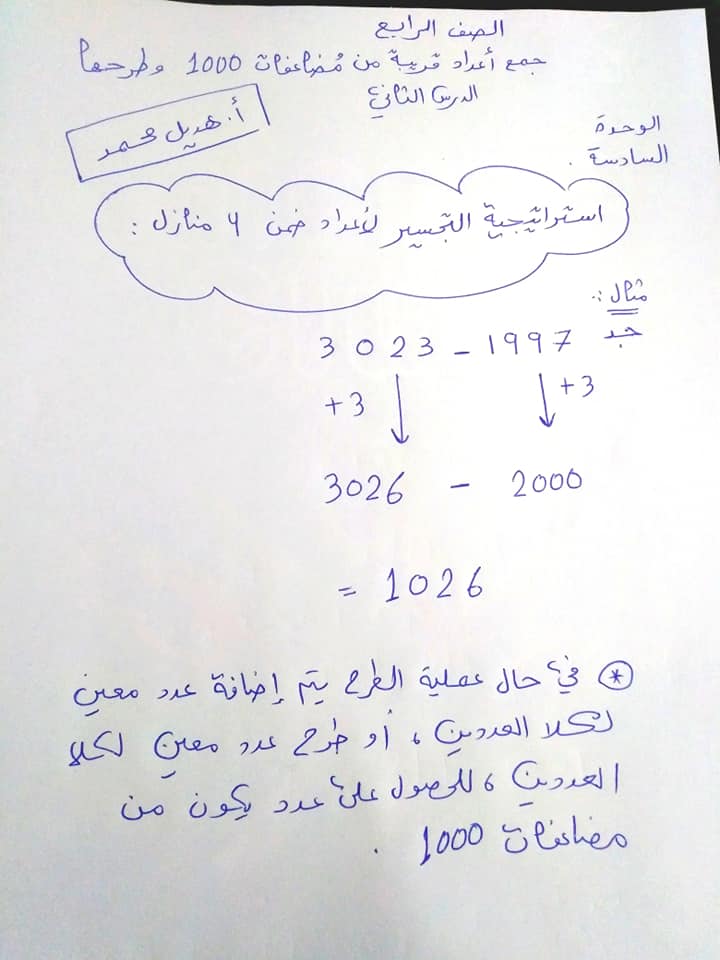 الصف الرابع
جمع أعداد قريبة من مُضاعفات 1000 وطرحها
الدرس الثاني
أ. هديل محمد
الوحدة
السادسة .
استراتيجية التجسير لأعداد ضمن 4 منازل :
مثال :.
جد 3023 - 1997
+3 +3
3026 - 2000
= 1026
* في حال عملية الطرح يتم إضافة عدد معين
لكلا العددين ، أو طرح عدد معين لكلا
العددين ، للحصول على عدد يكون من
مضاعفات 1000 .